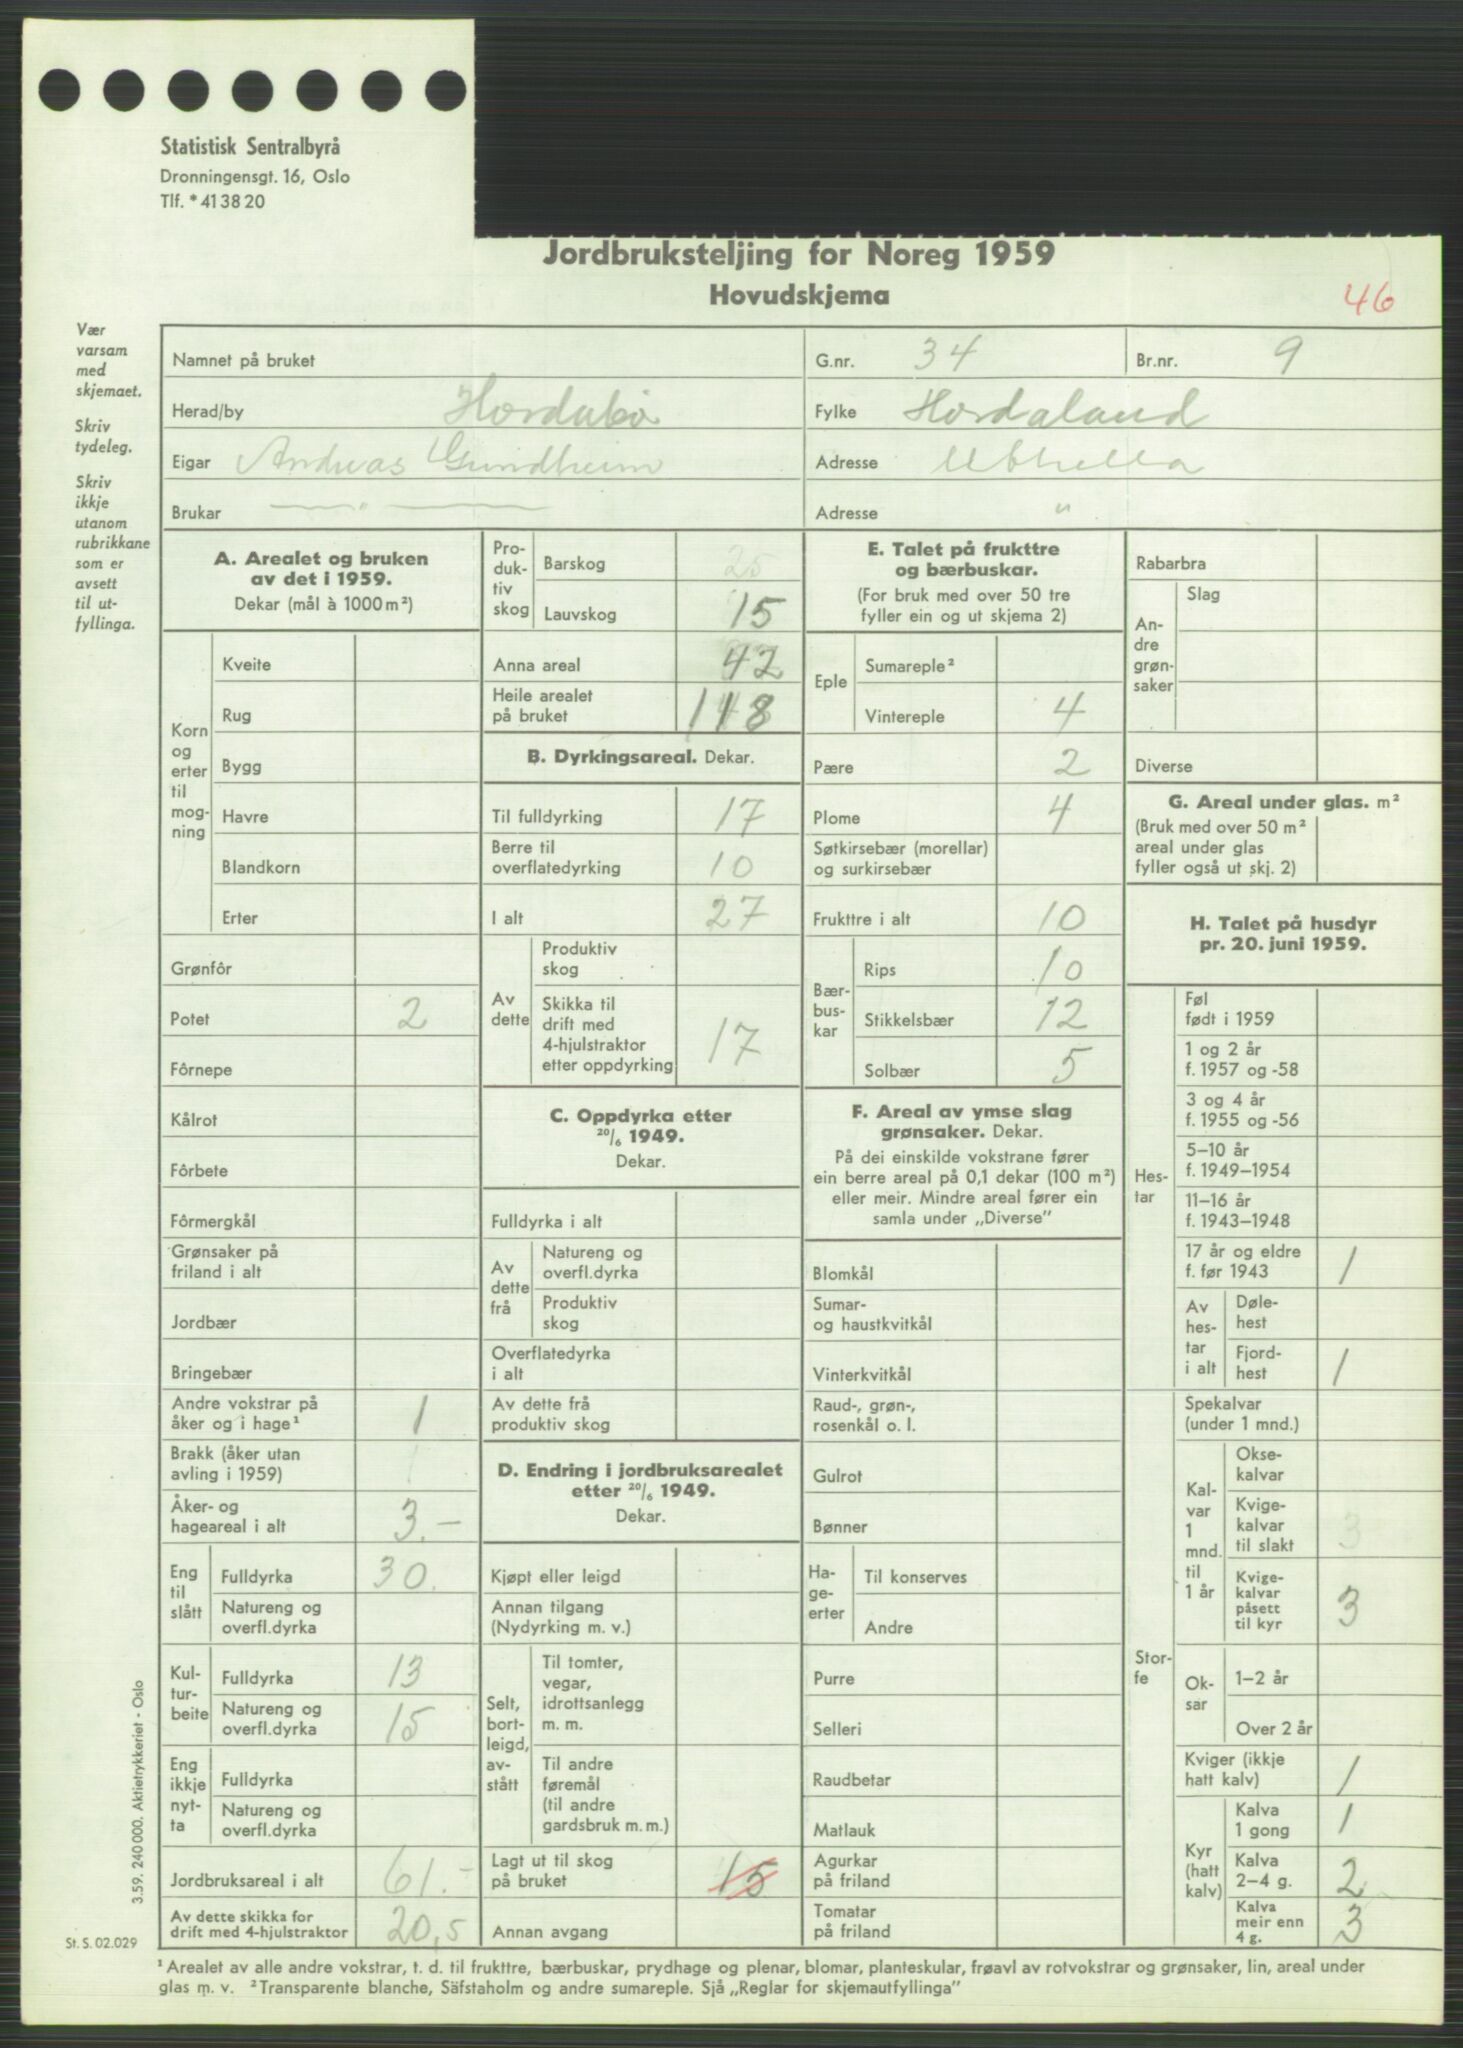 Statistisk Sentralbyrå
Dronningensgt. 16, Oslo
Tlf. *41 38 20
Jordbruksteljing for Noreg 1959
Hovudskjema
46
Vær
varsam
med
skjemaet.
Skriv
tydeleg.
Skriv
ikkje
utanom
rubrikkane
som er
avsett
til ut-
fyllinga.
Namnet på bruket G.nr. 34 Br.nr. 9
Herad/by Hordabø Fylke Hordaland
Eigar Andreas Gundheim Adresse
Brukar — " — Adresse "
A. Arealet og bruken
av det i 1959.
Dekar (mål à 1000 m²)
Korn
og
erter
til
mog-
ning
Kveite
Rug
Bygg
Havre
Blandkorn
Erter
Grønfôr
Potet 2
Fôrnepe
Kålrot
Fôrbete
Fôrmergkål
Grønsaker på
friland i alt
Jordbær
Bringebær
Andre vokstrar på
åker og i hage¹ 1
Brakk (åker utan
avling i 1959)
Åker- og
hageareal i alt 3.—
Eng
til
slått
Fulldyrka 30.
Natureng og
overfl.dyrka
Kul-
tur-
beite
Fulldyrka 13
Natureng og
overfl.dyrka 15
Eng
ikkje
nyt-
ta
Fulldyrka
Natureng og
overfl.dyrka
Jordbruksareal i alt 61.-
Av dette skikka for
drift med 4-hjulstraktor 20,5
Pro-
duk-
tiv
skog
Barskog 25
Lauvskog 15
Anna areal 42
Heile arealet
på bruket 118
B. Dyrkingsareal. Dekar.
Til fulldyrking 17
Berre til
overflatedyrking 10
I alt 27
Av
dette
Produktiv
skog
Skikka til
drift med
4-hjulstraktor
etter oppdyrking 17
C. Oppdyrka etter
20/6 1949.
Dekar.
Fulldyrka i alt
Av
dette
frå
Natureng og
overfl.dyrka
Produktiv
skog
Overflatedyrka
i alt
Av dette frå
produktiv skog
D. Endring i jordbruksarealet
etter 20/6 1949.
Dekar.
Kjøpt eller leigd
Annan tilgang
(Nydyrking m. v.)
Selt,
bort-
leigd,
av-
stått
Til tomter,
vegar,
idrottsanlegg
m. m.
Til andre
føremål
(til andre
gardsbruk m. m.)
Lagt ut til skog
på bruket 15
Annan avgang
E. Talet på frukttre
og bærbuskar.
(For bruk med over 50 tre
fyller ein og ut skjema 2)
Eple
Sumareple²
Vintereple 4
Pære 2
Plome 4
Søtkirsebær (morellar)
og surkirsebær
Frukttre i alt 10
Bær-
bus-
kar
Rips 10
Stikkelsbær 12
Solbær 5
F. Areal av ymse slag
grønsaker. Dekar.
På dei einskilde vokstrane fører
ein berre areal på 0,1 dekar (100 m²)
eller meir. Mindre areal fører ein
samla under „Diverse”
Blomkål
Sumar-
og haustkvitkål
Vinterkvitkål
Raud-, grøn-,
rosenkål o. l.
Gulrot
Bønner
Ha-
ge-
erter
Til konserves
Andre
Purre
Selleri
Raudbetar
Matlauk
Agurkar
på friland
Tomatar
på friland
Rabarbra
An-
dre
grøn-
saker
Slag
Diverse
G. Areal under glas. m²
(Bruk med over 50 m²
areal under glas
fyller også ut skj. 2)
H. Talet på husdyr
pr. 20. juni 1959.
Hes-
tar
Føl
født i 1959
1 og 2 år
f. 1957 og -58
3 og 4 år
f. 1955 og -56
5–10 år
f. 1949–1954
11–16 år
f. 1943–1948
17 år og eldre
f. før 1943 1
Av
hes-
tar
i alt
Døle-
hest
Fjord-
hest 1
Stor-
fe
Spekalvar
(under 1 mnd.)
Kal-
var
1
mnd.
til
1 år
Okse-
kalvar
Kvige-
kalvar
til slakt 3
Kvige-
kalvar
påsett
til kyr 3
Ok-
sar
1–2 år
Over 2 år
Kviger (ikkje
hatt kalv) 1
Kyr
(hatt
kalv)
Kalva
1 gong 1
Kalva
2–4 g. 2
Kalva
meir enn
4 g. 3
3.59. 240 000. Aktietrykkeriet - Oslo
St. S. 02.029
¹ Arealet av alle andre vokstrar, t. d. til frukttre, bærbuskar, prydhage og plenar, blomar, planteskular, frøavl av rotvokstrar og grønsaker, lin, areal under
glas m. v. ² Transparente blanche, Säfstaholm og andre sumareple. Sjå „Reglar for skjemautfyllinga”